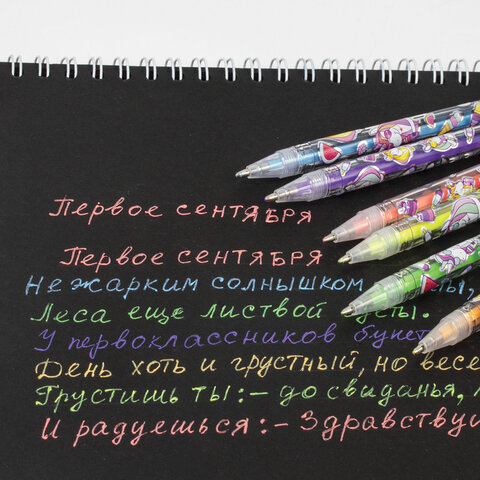 Первое сентября
Первое сентября
Нежарким солнышком ты,
Леса еще листвой густы.
У первоклассников букеты
День хоть и грустный, но весе
Грустишь ты:- до свиданья,
И радуешься:- Здравствуй